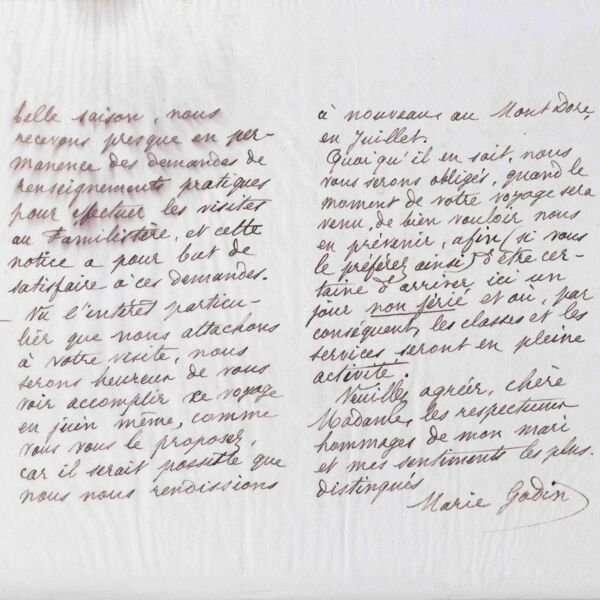 belle saison, nous
recevons presque en per-
manence des demandes de
renseignements pratiques
pour effectuer les visites
au Familistère, et cette
notice a pour but de
satisfaire à ces demandes.
– Vu l'intérêt particu-
lier que nous attachons
à votre visite, nous
serons heureux de vous
voir accomplir ce voyage
en juin même, comme
vous vous le proposez,
car il serait possible que
nous nous rendissions
à nouveau au Mont Dore,
en Juillet.
Quoiqu'il en soit, nous
vous serons obligés, quand le
moment de votre voyage sera
venu, de bien vouloir nous
en prévenir, afin (si vous
le préférez ainsi) d'être cer-
taine d'arriver ici un
jour non férié et où, par
conséquent, les classes et les
services seront en pleine
activité.
Veuillez agréer, chère
Madame, les respectueux
hommages de mon mari
et mes sentiments les plus
distingués
Marie Godin